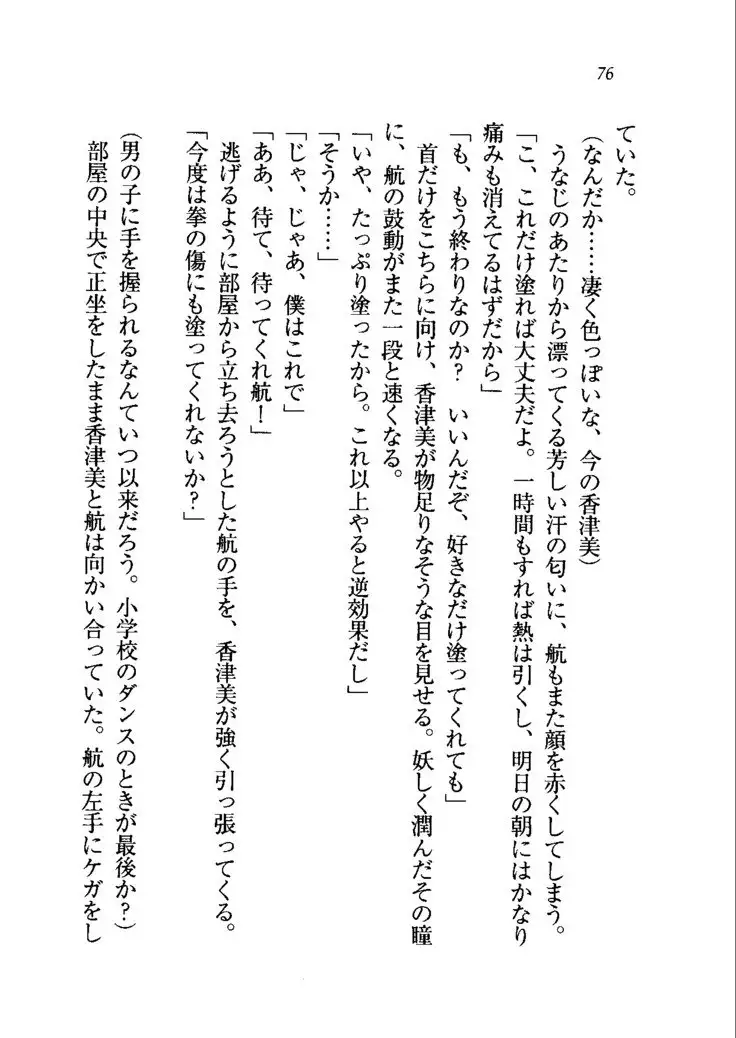 76
ていた。
(なんだか……凄く色っぽいな、今の香津美)
うなじのあたりから漂ってくる芳しい汗の匂いに、航もまた顔を赤くしてしまう。
「こ、これだけ塗れば大丈夫だよ。一時間もすれば熱は引くし、明日の朝にはかなり
痛みも消えてるはずだから」
「も、もう終わりなのか? いいんだぞ、好きなだけ塗ってくれても」
首だけをこちらに向け、香津美が物足りなそうな目を見せる。妖しく潤んだその瞳
に、航の鼓動がまた一段と速くなる。
「いや、たっぷり塗ったから。これ以上やると逆効果だし」
「そうか……」
「じゃ、じゃあ、僕はこれで」
「ああ、待て、待ってくれ航!」
逃げるように部屋から立ち去ろうとした航の手を、香津美が強く引っ張ってくる。
「今度は拳の傷にも塗ってくれないか?」
(男の子に手を握られるなんていつ以来だろう。小学校のダンスのときが最後か?)
部屋の中央で正坐をしたまま香津美と航は向かい合っていた。航の左手にケガをし